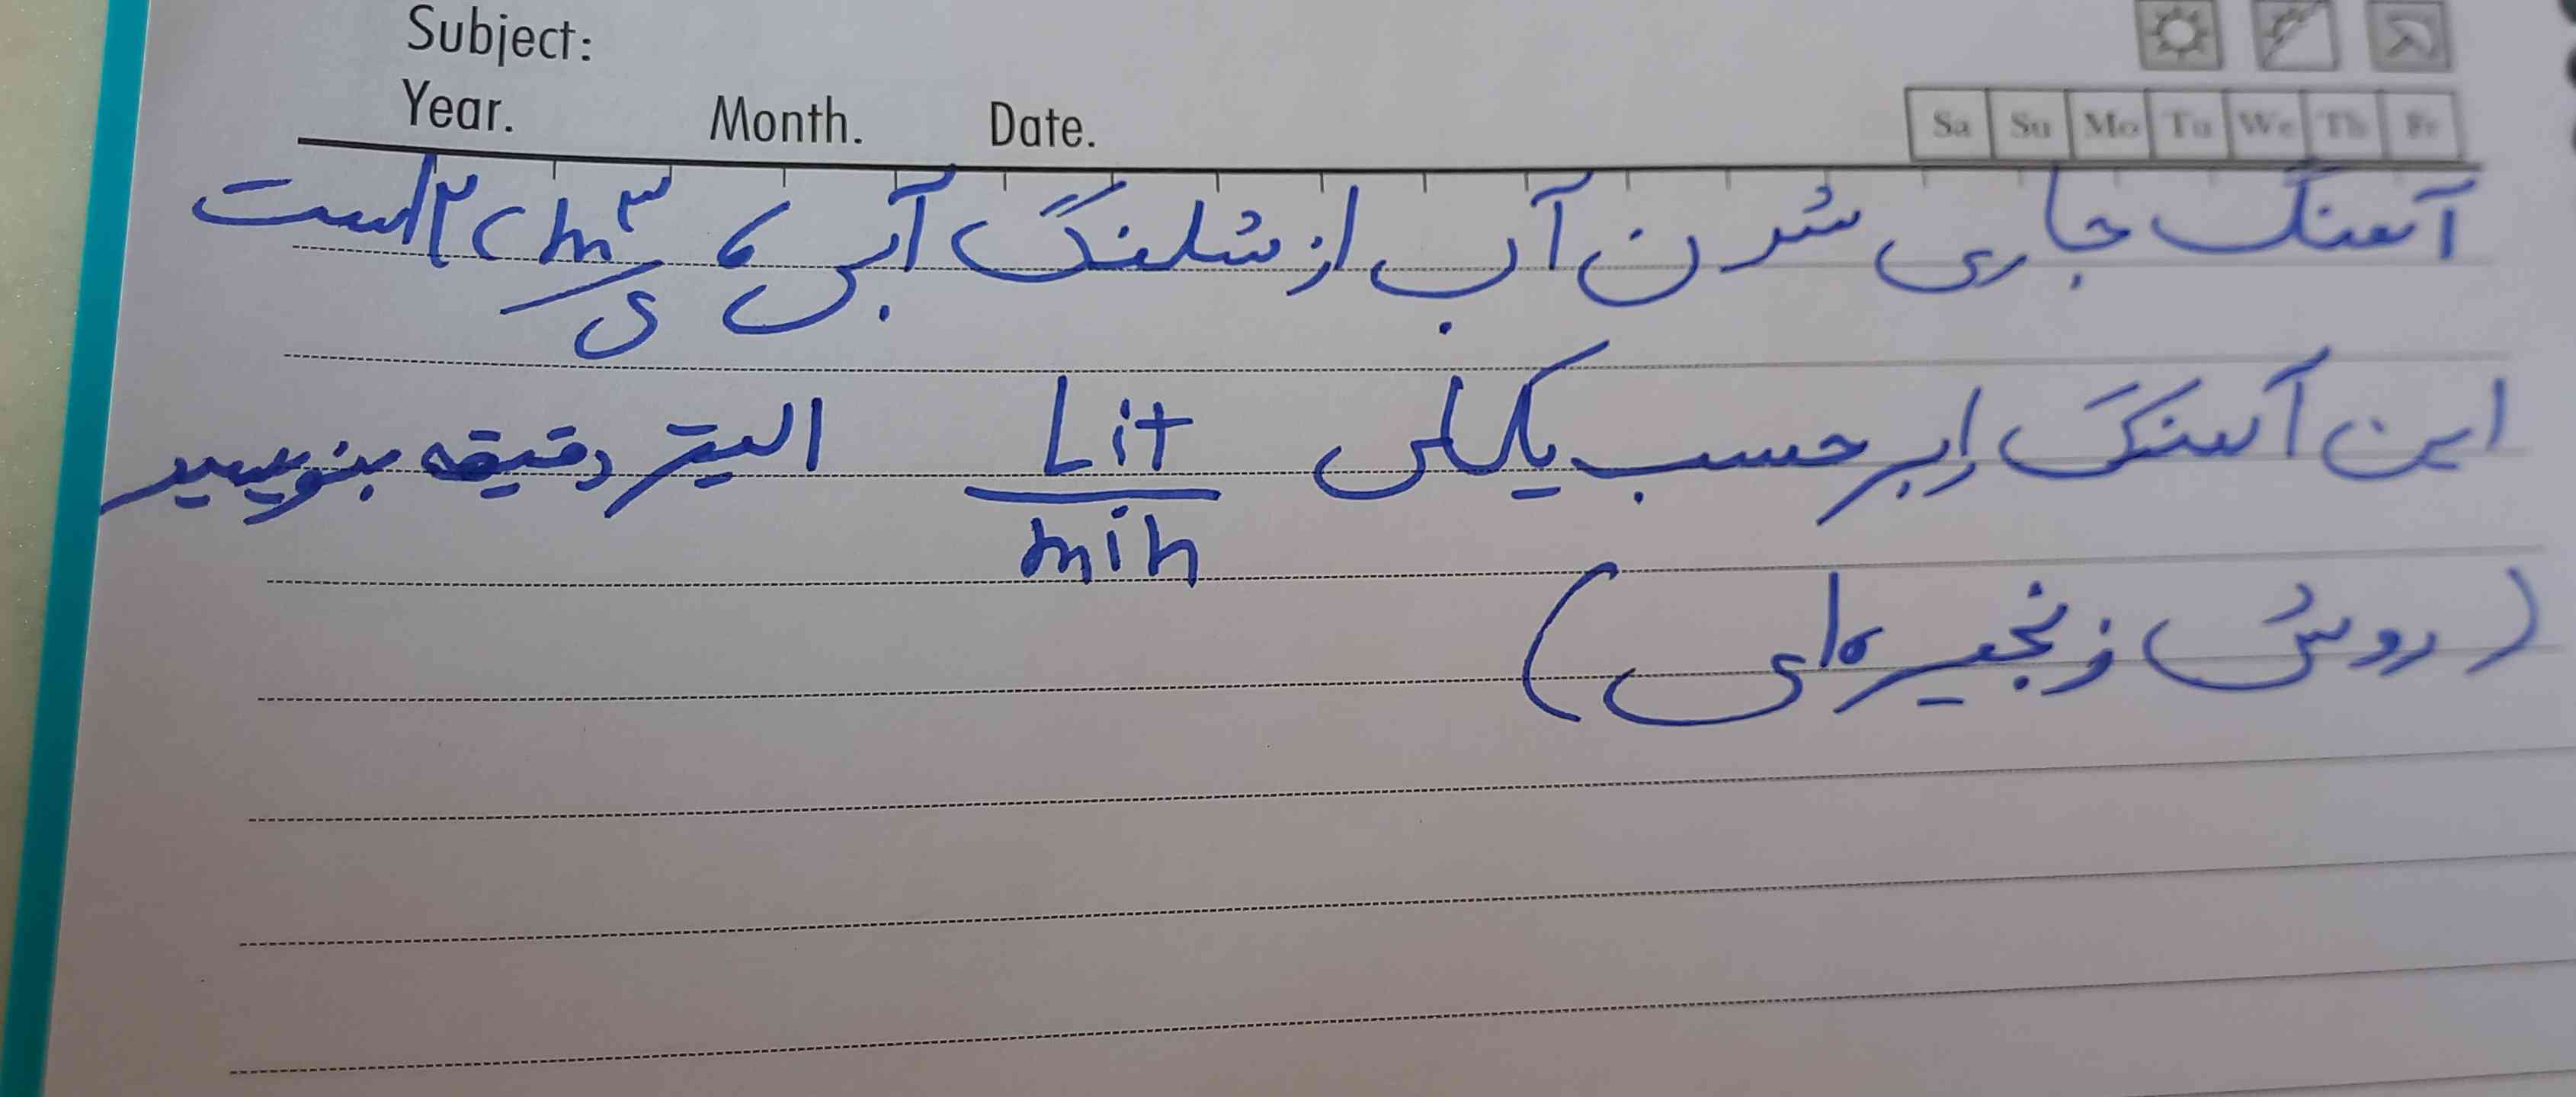 Subject:
Year. Month. Date.
Sa Su Mo Tu We Th Fr
آهنگ جاری شدن آب از شلنگ آبی ، ۲ cm³/s است
این آهنگ را بر حسب یکای Lit/min لیتر دقیقه بنویسید
(روش زنجیره‌ای)